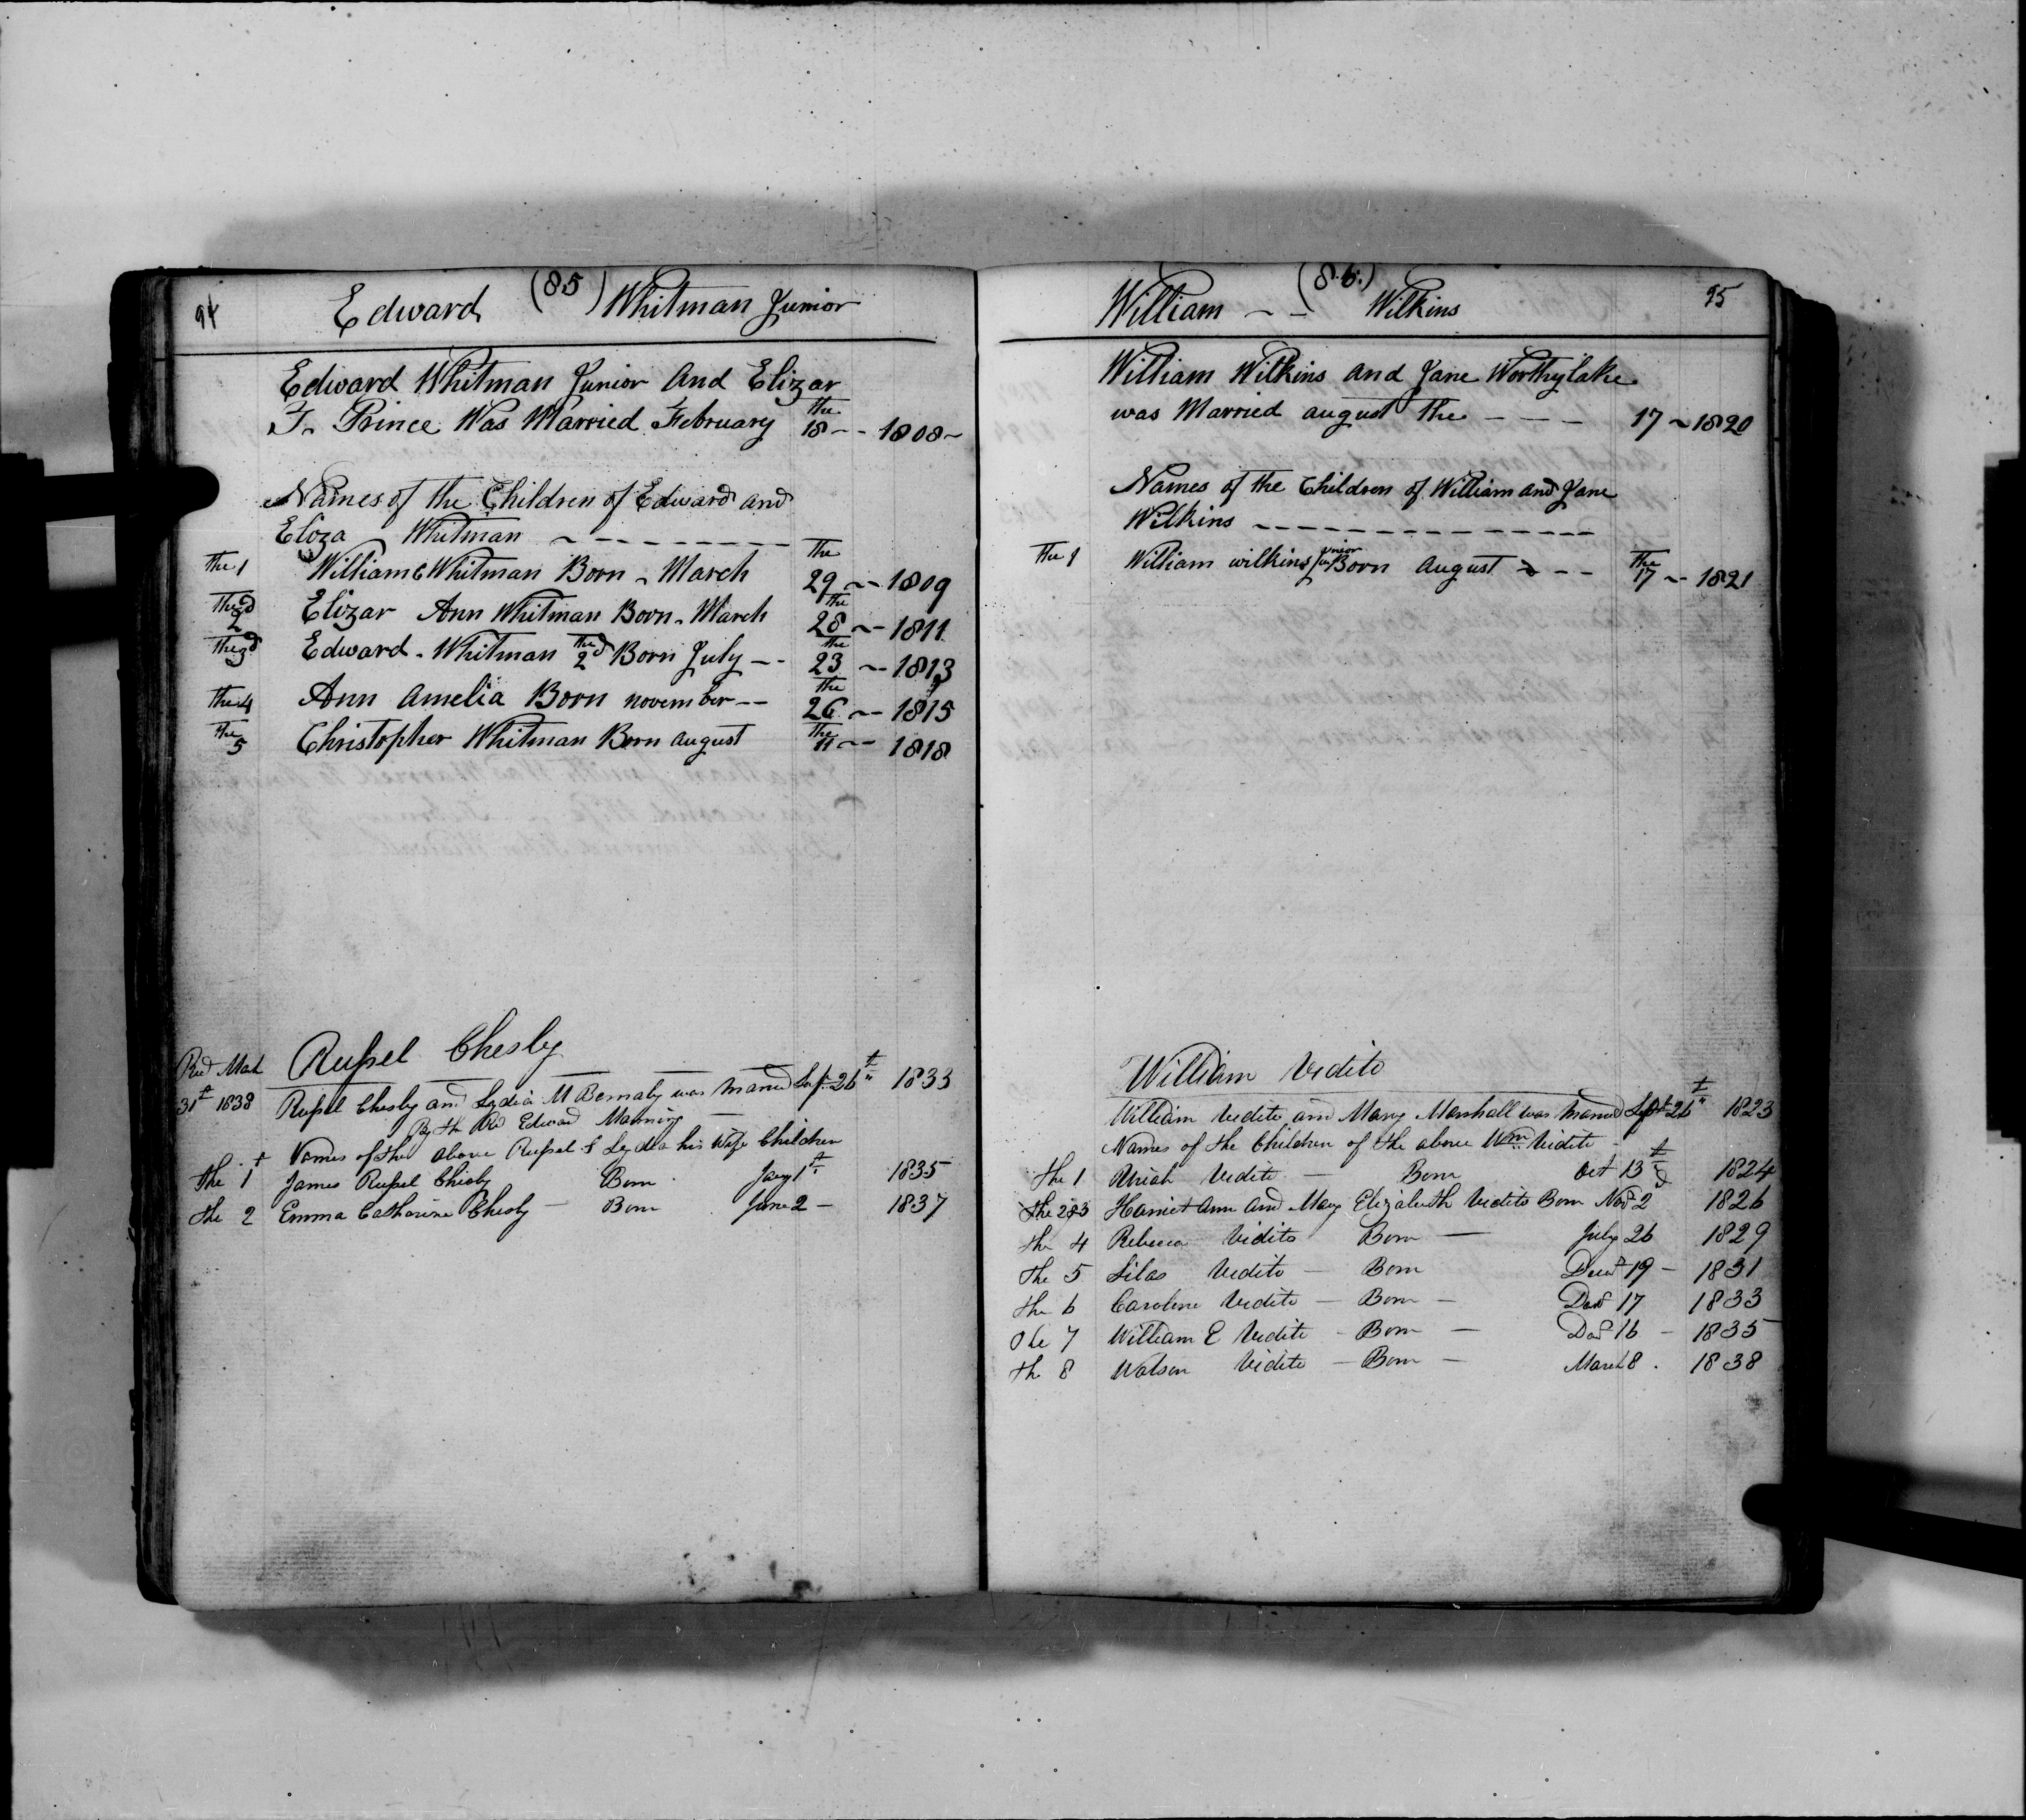 94 Edward (85) Whitman Junior
Edward Whitman Junior And Elizar
F. Prince Was Married February the 18 -- 1808 -
Names of the Children of Edward and
Eliza Whitman
The 1 William C Whitman Born - March The 29 -- 1809
The 2d Elizar Ann Whitman Born - March the 28 -- 1811
The 3d Edward - Whitman The 2d Born July -- the 23 -- 1813
the 4 Ann Amelia Born november -- The 26 -- 1815
the 5 Christopher Whitman Born august The 11 -- 1818
Rußel Chesly
Recd Mach
31st 1838 Rußel Chesly and Lydia M Bernaby was maried Sept 26th 1833
By the Rev Edward Manning
Names of the above Rußel & Lydia his Wife Children
the 1st James Rußel Chesly Born Jany 1st 1835
the 2 Emma Catharine Chesly - Born June 2 - 1837
William -- (86.) Wilkins 95
William Wilkins and Jane Worthylake
was Married august the --- 17 - 1820
Names of the Children of William and Jane
Wilkins
The 1 William wilkins Junior Born August -- The 17 -- 1821
William Vidito
William Vidito and Mary Marshall was maried Sept 26th 1823
Names of the Children of the above Wm Vidito -
the 1 Uriah Vidito - Born Oct 13th 1824
the 2 & 3 Harriet Ann and Mary Elizabeth Vidito Born Nod 2 1826
the 4 Rebecca Vidito Born - July 26 1829
the 5 Silas Vidito - Born Decd 19 - 1831
the 6 Caroline Vidito - Born - Decd 17 1833
the 7 William E Vidito - Born - Decd 16 - 1835
the 8 Watson Vidito - Born - March 8. 1838